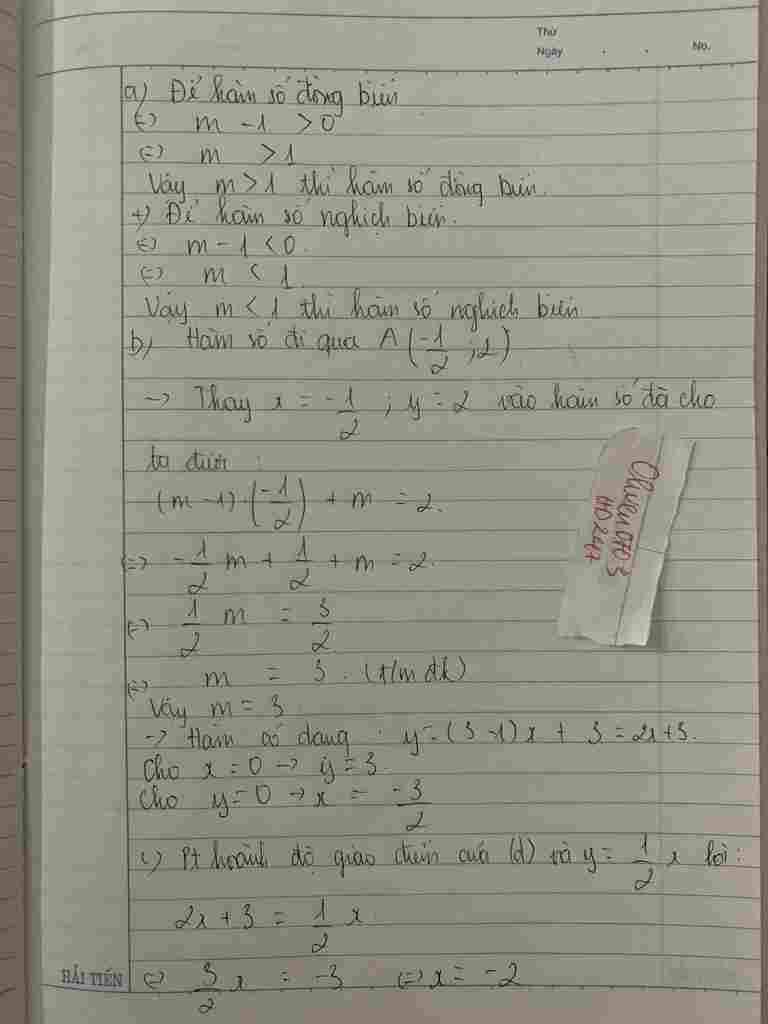 Thứ
Ngày . . No.
a) Để hàm số đồng biến
⇔ m - 1 > 0
⇔ m > 1
Vậy m > 1 thì hàm số đồng biến.
+) Để hàm số nghịch biến.
⇔ m - 1 < 0.
⇔ m < 1
Vậy m < 1 thì hàm số nghịch biến
b) Hàm số đi qua A (-1/2 ; 2)
→ Thay x = -1/2 ; y = 2 vào hàm số đã cho
ta được :
(m - 1) . (-1/2) + m = 2.
⇔ -1/2 m + 1/2 + m = 2.
⇔ 1/2 m = 3/2
⇔ m = 3 . (t/m đk)
Vậy m = 3
→ Hàm có dạng : y = (3 - 1)x + 3 = 2x + 3.
Cho x = 0 → y = 3
Cho y = 0 → x = -3/2
c) Pt hoành độ giao điểm của (d) và y = 1/2 x là :
2x + 3 = 1/2 x
⇔ 3/2 x = -3 ⇔ x = -2
HẢI TIẾN